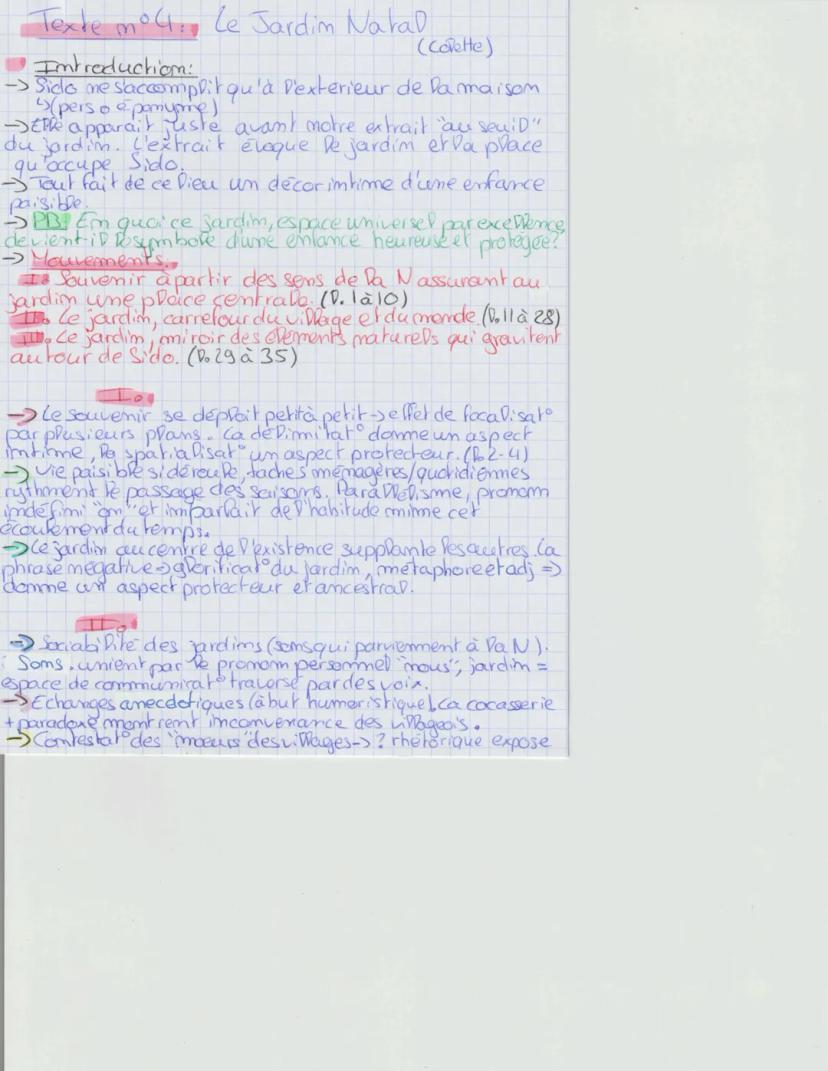 Texte n°4: Le Jardin Natal
(Colette)
Introduction:
-> Sido ne s'accomplit qu'à l'exterieur de la maison
↳(perso éponyme)
-> Elle apparait juste avant notre extrait "au seuil"
du jardin. L'extrait évoque le jardin et la place
qu'occupe Sido.
-> Tout fait de ce lieu un décor intime d'une enfance
paisible.
-> PB: En quoi ce jardin, espace universel par excellence,
devient il le symbole d'une enfance heureuse et protégée?
-> Mouvements.
I. Souvenir à partir des sens de la N assurant au
jardin une place centrale. (l. 1 à 10)
II. Le jardin, carrefour du village et du monde. (l. 11 à 28)
III. Le jardin, miroir des éléments naturels qui gravitent
autour de Sido. (l. 29 à 35)
I.
-> Le souvenir se déploit petit à petit -> effet de focalisat°
par plusieurs plans. La délimitat° donne un aspect
intime, la spatialisat° un aspect protecteur. (l. 2-4)
-> Vie paisible si déroule, taches ménagères/quotidiennes
rythment le passage des saisons. Parallélisme, pronom
indéfini "on" et imparfait de l'habitude mime cet
écoulement du temps.
-> Le jardin au centre de l'existence supplante les autres. La
phrase négative => glorificat° du jardin, métaphore et adj =>
donne un aspect protecteur et ancestral.
II.
=> Sociabilité des jardins (sons qui parviennent à la N).
Sons unient par le pronom personnel "nous"; jardin =
espace de communicat° traversé par des voix.
-> Echanges anecdotiques (à but humoristique). La cocasserie
+ paradoxe montrent inconvenance des villageois.
-> Contestat° des "moeurs" des villages -> ? rhétorique expose